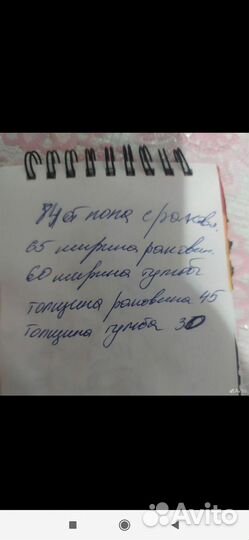 84 от пола с раков.
65 ширина раковин.
60 ширина тумбы
толщина раковина 45
толщина тумба 30
Avito